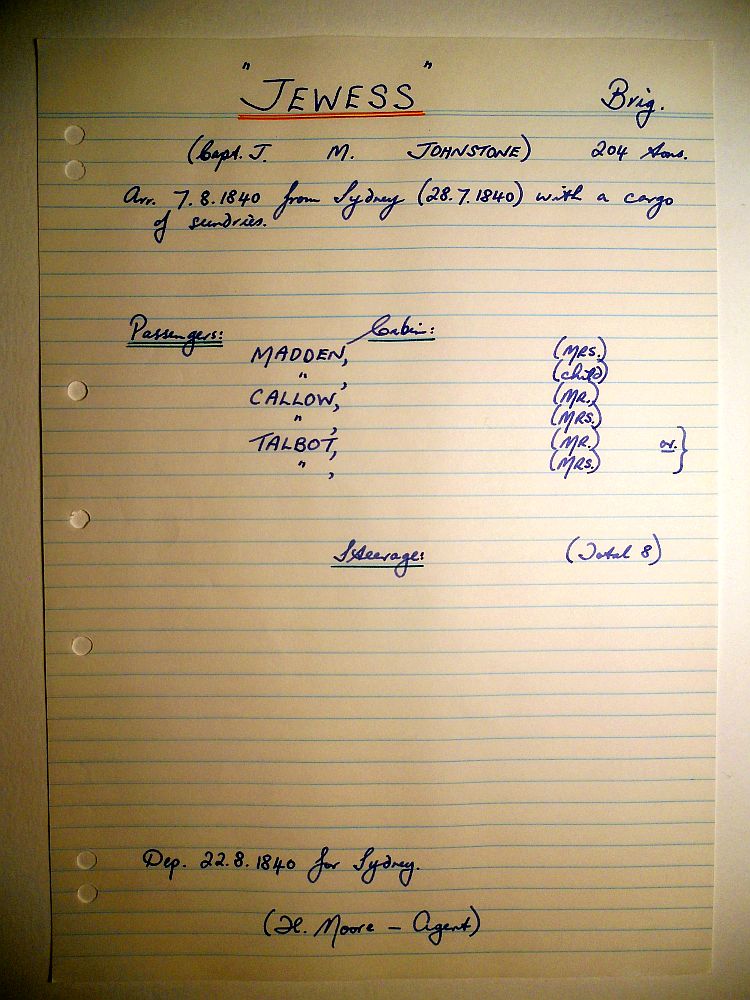 "JEWESS" Brig.
(Capt. J. M. JOHNSTONE) 204 tons.
Arr. 7.8.1840 from Sydney (28.7.1840) with a cargo
of sundries.
Passengers: Cabin:
MADDEN, (MRS.)
" , (child)
CALLOW, (MR.)
" , (MRS.)
TALBOT, (MR.) or. }
" , (MRS.)
Steerage: (Total 8)
Dep. 22.8.1840 for Sydney.
(H. Moore - Agent)